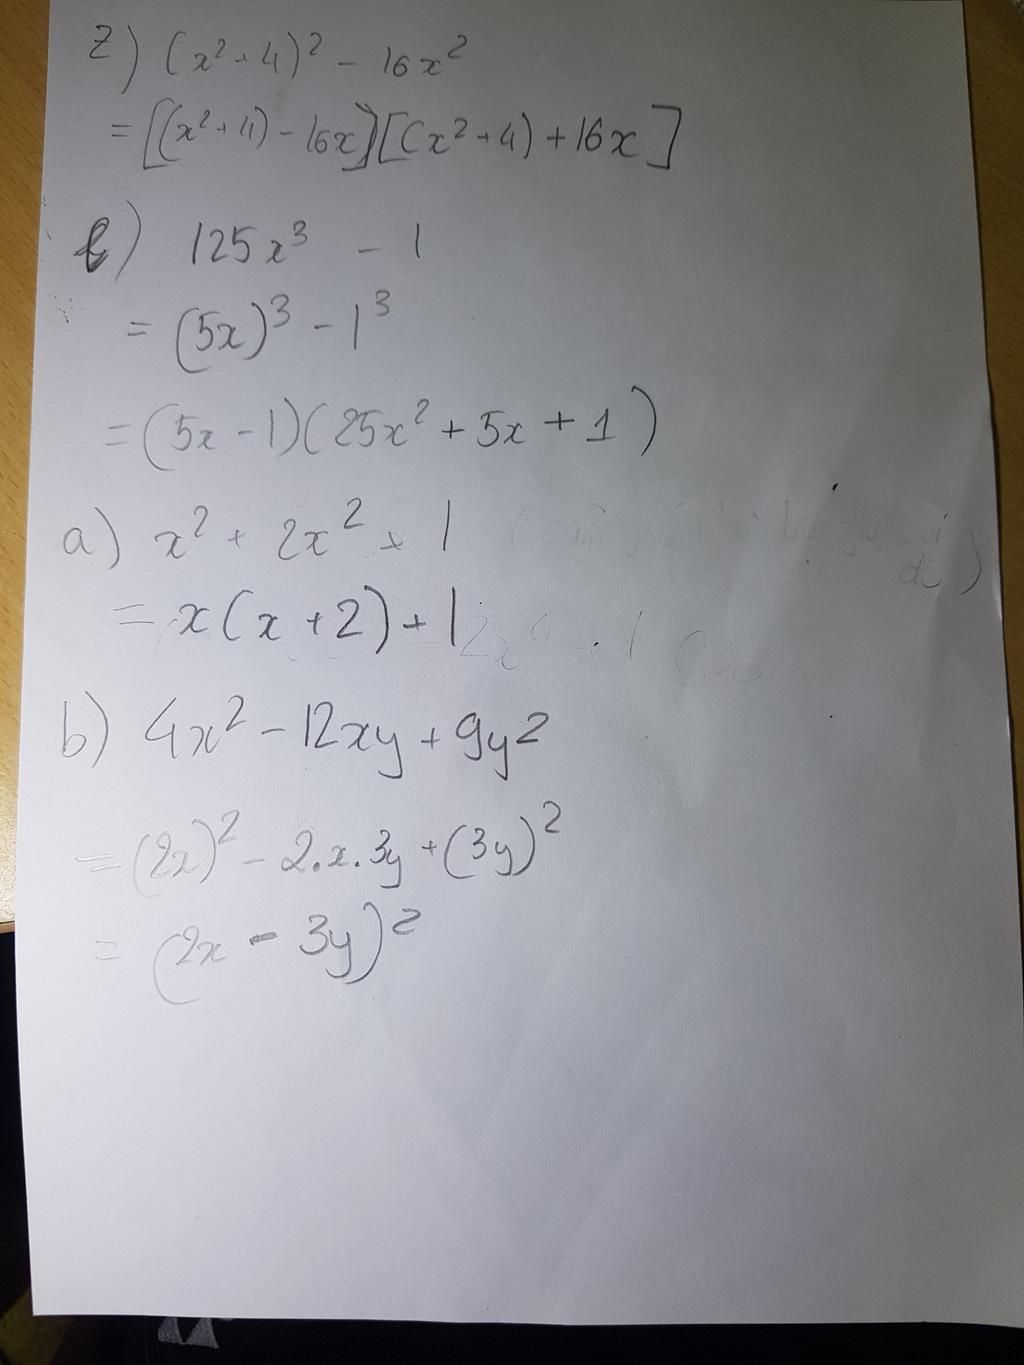 z) (x² + 4)² - 16x²
= [(x² + 4) - 16x][(x² + 4) + 16x]
b) 125x³ - 1
= (5x)³ - 1³
= (5x - 1)(25x² + 5x + 1)
a) x² + 2x² + 1
= x(x + 2) + 1
b) 4x² - 12xy + 9y²
= (2x)² - 2.x.3y + (3y)²
= (2x - 3y)²